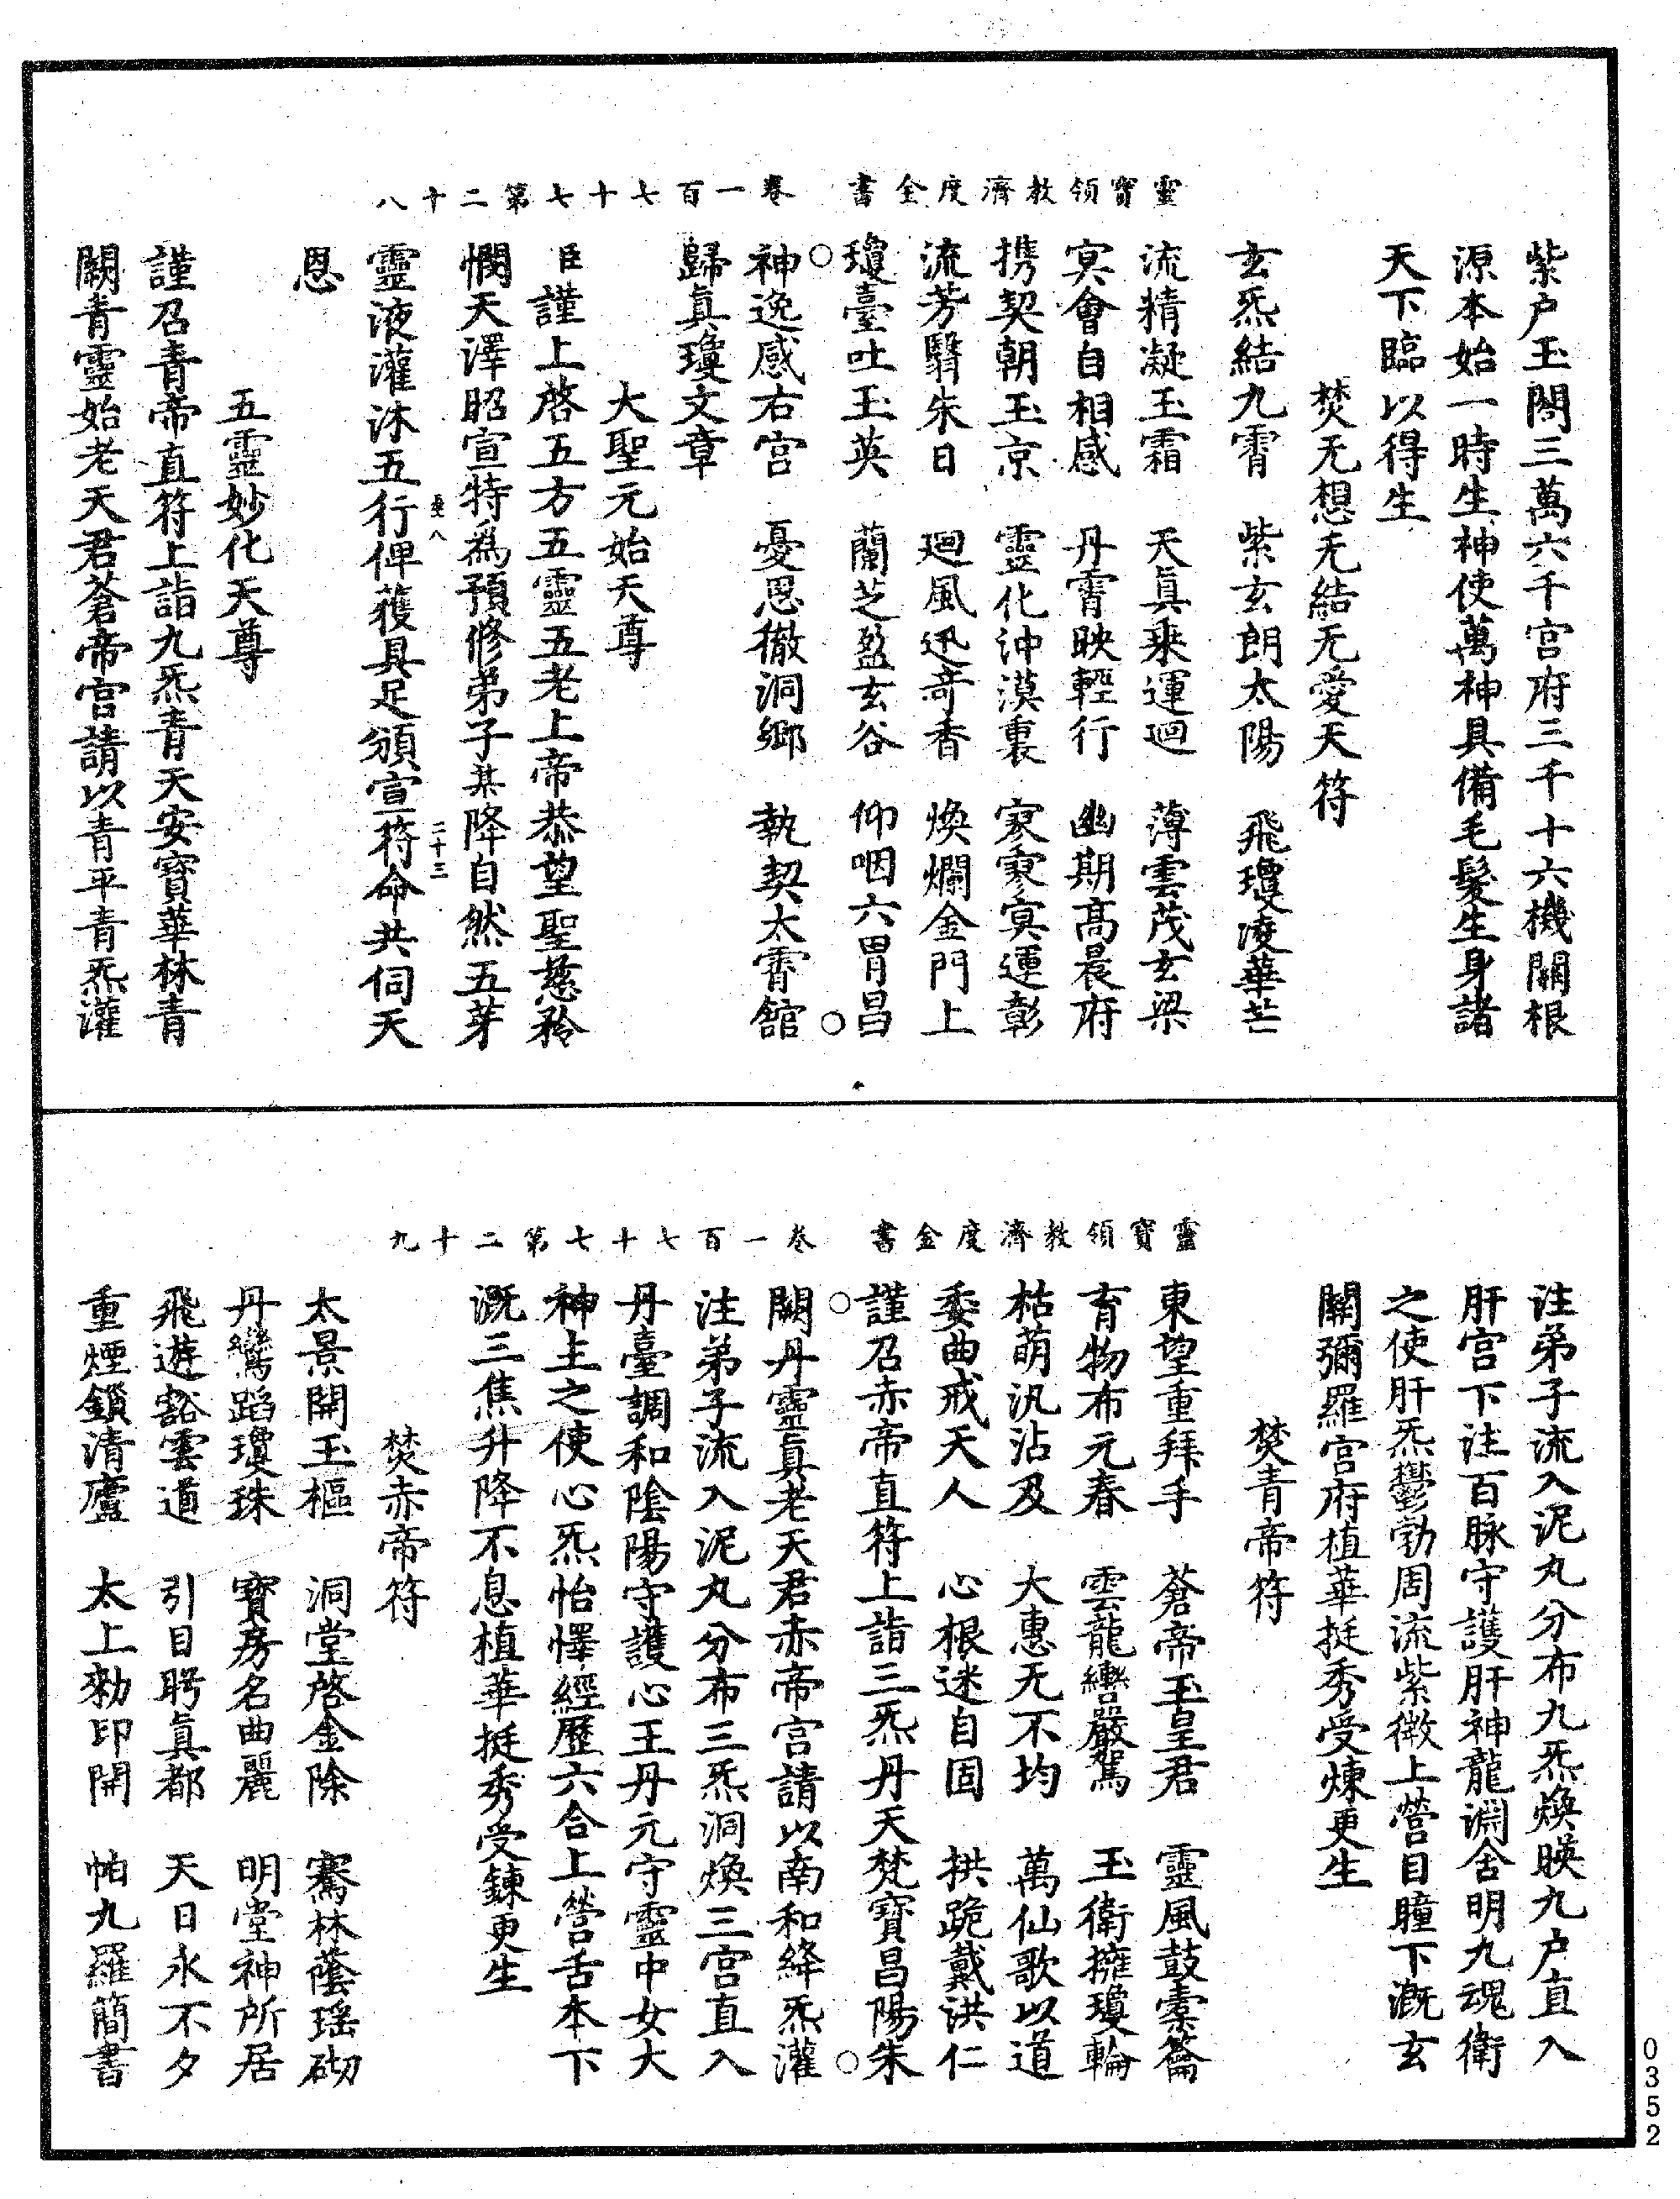 靈寶領教濟度金書　卷一百七十七第二十八
紫户玉閤三萬六千宫府三千十六機關根
源本始一時生神使萬神具備毛髮生身諸
天下臨以得生
焚无想无結无愛天符
玄炁結九霄　紫玄朗太陽　飛瓊凌華芒
流精凝玉霜　天真乘運迴　薄雲茂玄梁
冥會自相感　丹霄映輕行　幽期高晨府
携契朝玉京　靈化沖漠裏　寥寥冥運彰
流芳翳朱日　迴風迅奇香　煥爛金門上
瓊臺吐玉英　蘭芝盈玄谷　仰咽六胃昌
神逸感右宫　憂恩徹洞鄉　執契太霄館
歸真瓊文章
大聖元始天尊
臣謹上啓五方五靈五老上帝恭望聖慈矜
憫天澤昭宣特為預修弟子某降自然五芽
二十三
靈液灌沐五行俾獲具足頒宣符命共伺天
恩
五靈妙化天尊
謹召青帝直符上詣九炁青天安寶華林青
闕青靈始老天君蒼帝宫請以青平青炁灌
靈寶領教濟度金書　卷一百七十七第二十九
注弟子流入泥丸分布九炁煥暎九户直入
肝宫下注百脉守護肝神龍淵舍明九魂衛
之使肝炁鬱勃周流紫微上營目瞳下溉玄
關彌羅宫府植華挺秀受煉更生
焚青帝符
東望重拜手　蒼帝玉皇君　靈風鼓橐籥
育物布元春　雲龍轡嚴駕　玉衛擁瓊輪
枯萌汎沾及　大惠无不均　萬仙歌以道
委曲戒天人　心根迷自固　拱跪戴洪仁
謹召赤帝直符上詣三炁丹天梵寶昌陽朱
闕丹靈真老天君赤帝宫請以南和絳炁灌
注弟子流入泥丸分布三炁洞煥三宫直入
丹臺調和陰陽守護心王丹元守靈中女大
神主之使心炁怡懌經歷六合上營舌本下
溉三焦升降不息植華挺秀受鍊更生
焚赤帝符
太景開玉樞　洞堂啓金除　騫林蔭瑶砌
丹鸞蹈瓊珠　寶房名曲麗　明堂神所居
飛遊豁雲道　引目眄真都　天日永不夕
重煙鎖清廬　太上勑印開　帕九羅簡書
0352